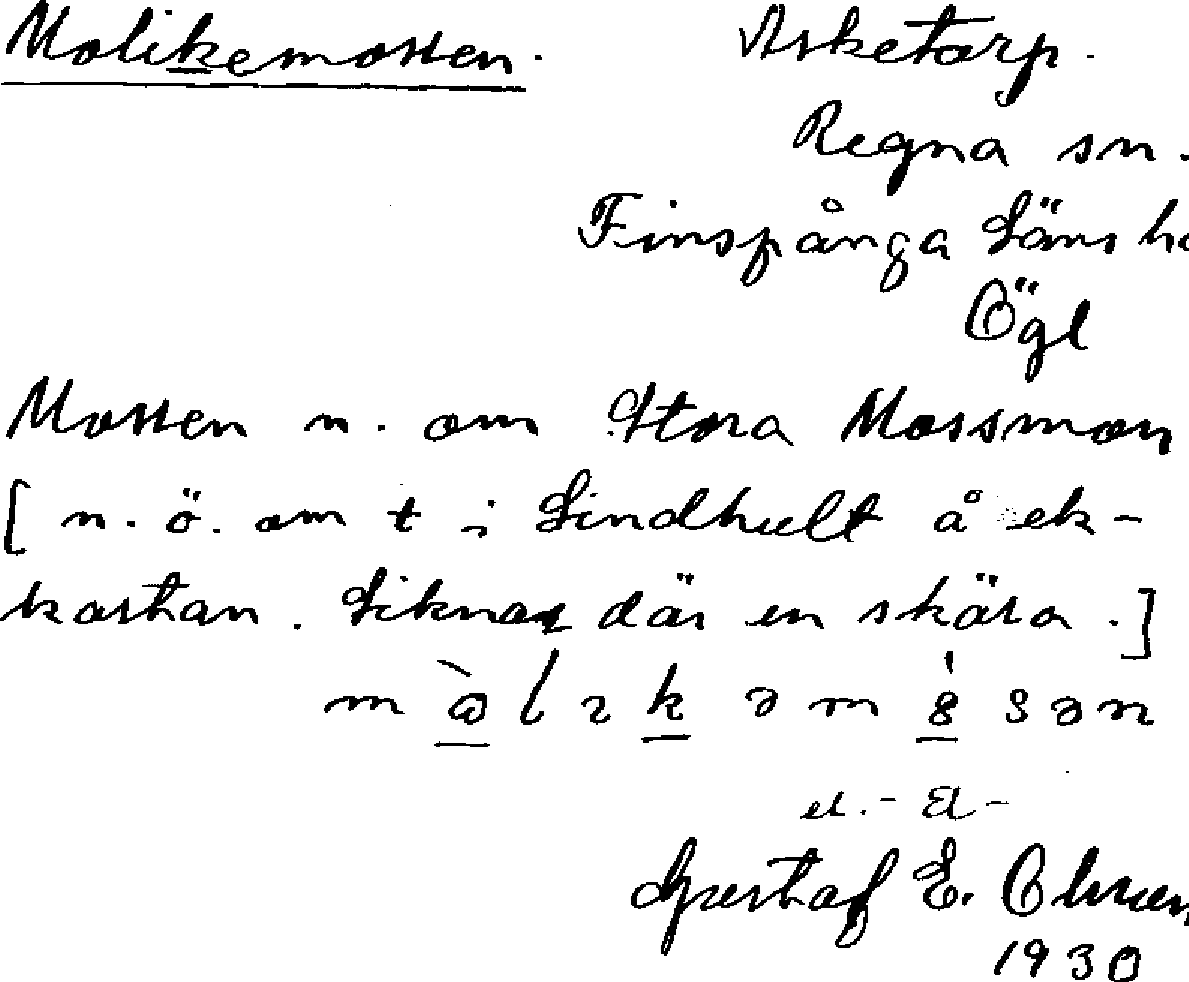 Molikemossen. Asketorp.
Regna sn.
Finspånga Läns h
Ögl
Mossen n. om Stora Mossmon
[ n. ö. om t i Lindhult å ek-
kartan. Liknar där en skära.]
el.
Gustaf E. Olsson
1930